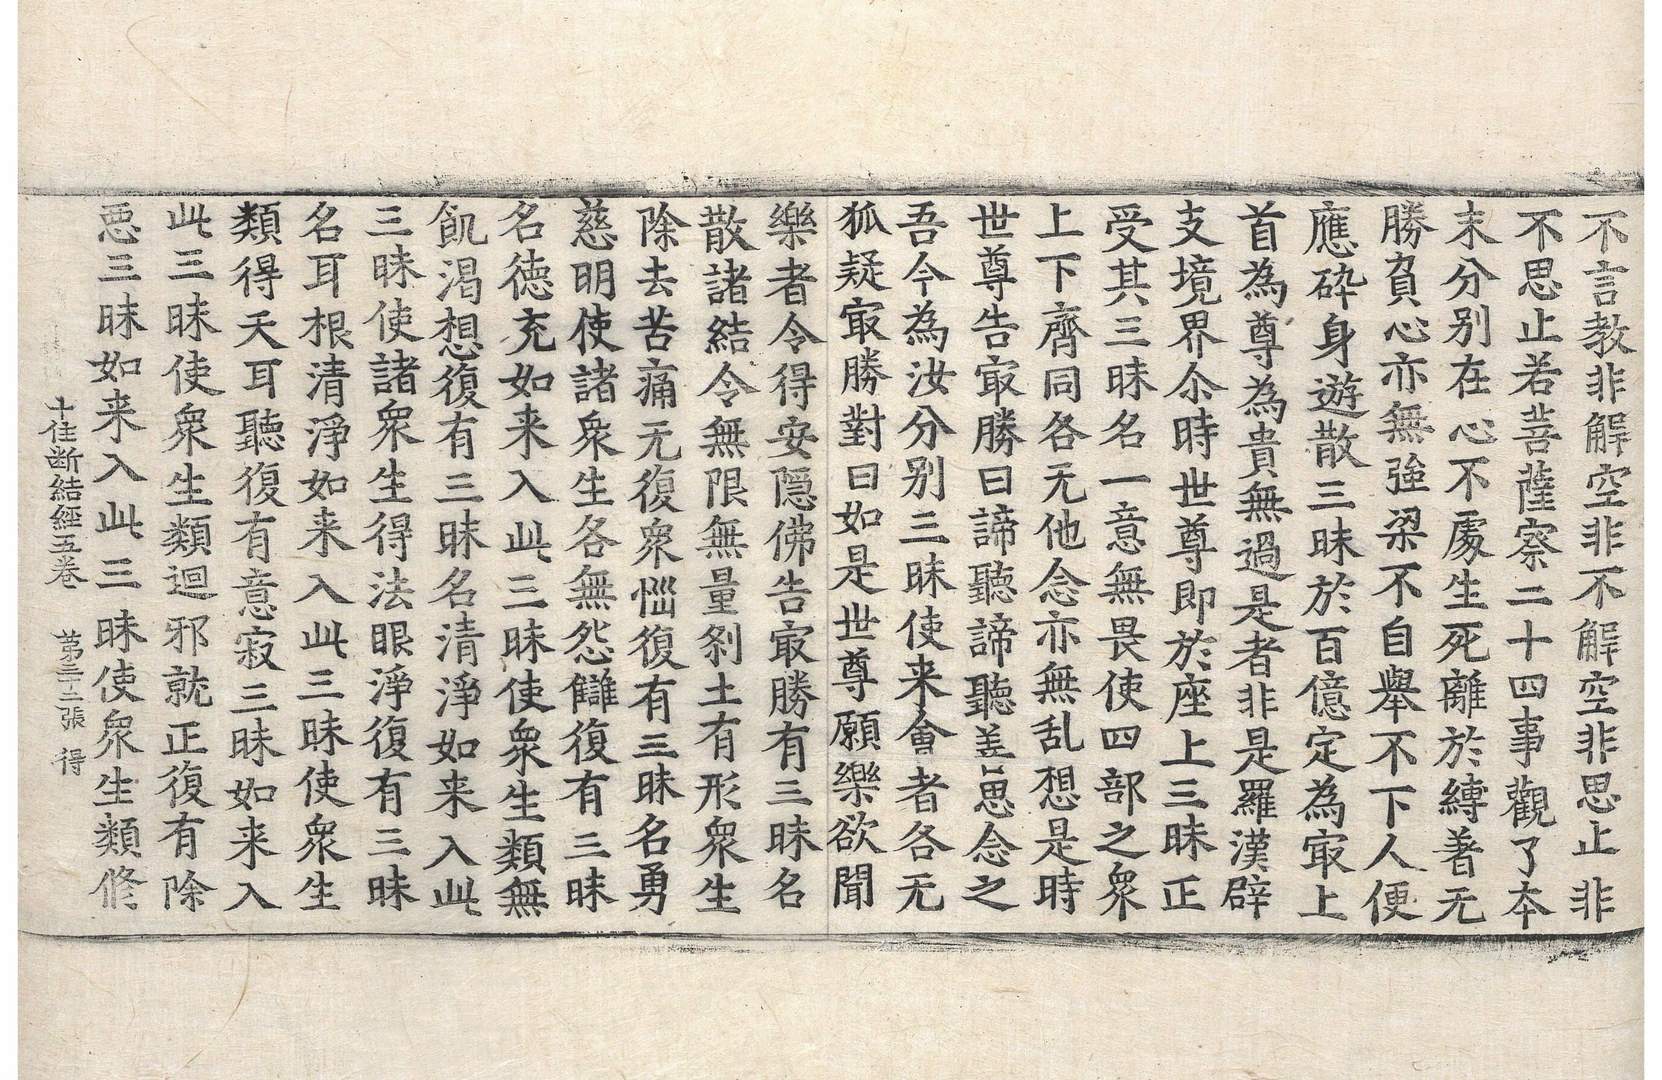 不言教非解空非不解空非思止非
不思止若菩薩察二十四事觀了本
末分别在心不處生死離於縛著无
勝負心亦無強梁不自舉不下人便
應碎身遊散三昧於百億定為㝡上
首為尊為貴無過是者非是羅漢辟
支境界尒時世尊即於座上三昧正
受其三昧名一意無畏使四部之衆
上下齊同各无他念亦無乱想是時
世尊告㝡勝曰諦聽諦聽善思念之
吾今為汝分别三昧使来會者各无
狐疑㝡勝對曰如是世尊願樂欲聞
樂者令得安隱佛告㝡勝有三昧名
散諸結令無限無量剎土有形衆生
除去苦痛无復衆惱復有三昧名勇
慈明使諸衆生各無怨讎復有三昧
名德充如来入此三昧使衆生類無
飢渴想復有三昧名清淨如来入此
三昧使諸衆生得法眼淨復有三昧
名耳根清淨如来入此三昧使衆生
類得天耳聽復有意寂三昧如来入
此三昧使衆生類迴邪就正復有除
惡三昧如来入此三昧使衆生類修
十住断結經五卷 第三十二張 得